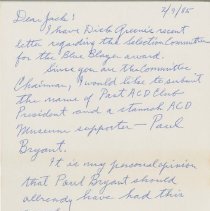 2/9/85
Dear Jack!
I have Dick Greene's recent
letter regarding the Selection Committee
for the Blue Blazer award.
Since you are the Committee
Chairman, I would like to submit
the name of Past ACD Club
President and a staunch ACD
Museum supporter - Paul
Bryant.
It is my personal opinion
that Paul Bryant should
allready have had this